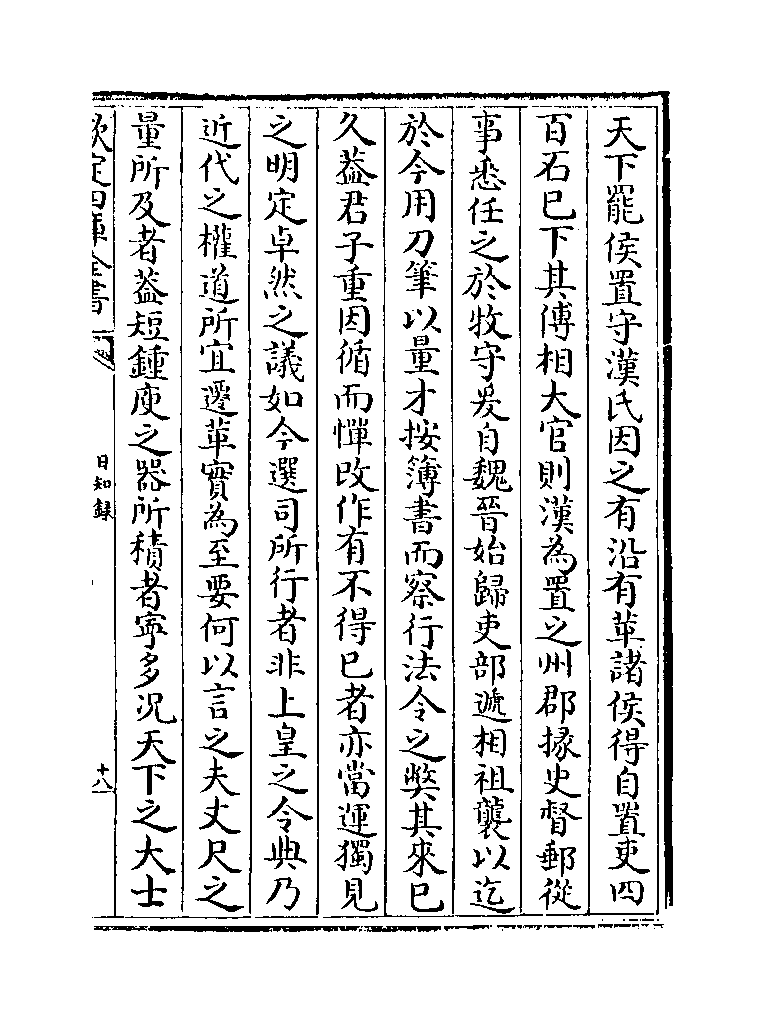 天下罷侯置守漢氏因之有沿有革諸侯得自置吏四
百石已下其傅相大官則漢為置之州郡掾史督郵從
事悉任之於牧守爰自魏晉始歸吏部遞相祖襲以迄
於今用刀筆以量才按簿書而察行法令之弊其來已
久葢君子重因循而憚改作有不得已者亦當運獨見
之明定卓然之議如今選司所行者非上皇之令典乃
近代之權道所宜遷革實為至要何以言之夫丈尺之
量所及者葢短鍾庾之器所積者寧多况天下之大士
欽定四庫全書
日知録
十八